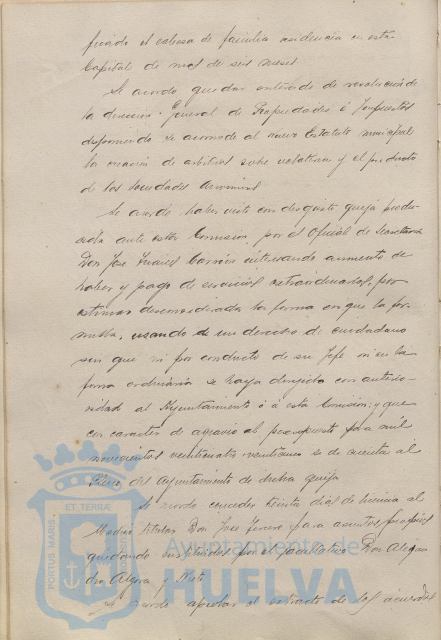 ficado el cabeza de familia residencia en esta
Capital de mas de seis meses.
Se acordo quedar enterado de resolucion de
la direccion General de Propiedades é Impuestos
disponiendo se acomode al nuevo Estatuto municipal
la creación de arbitrios sobre velatorias y el producto
de las Sociedades
Se acordo haber visto con desgusto queja produ-
cida ante esta Comision, por el Oficial de Secretaria
Don Jose Suarez Carrión interesando aumento de
haber y pago de servicios extraordinarios, por
estimar desconsiderada la forma en que la for-
mula, usando de un derecho de ciudadano
sin que ni por conducto de su Jefe ni en la
forma ordinaria se haya dirigido con anterio-
ridad al Ayuntamiento ó á esta Comision; y que
con caracter de agravio al presupuesto para mil
novecientos veinticuatro veinticinco se de cuenta al
Pleno del ayuntamiento de dicha queja.
Se acordo conceder treinta dias de licencia al
Medico titular Don Jose para asuntos propios
quedando sustituido por el facultativo Don Alejan
dro y Nieto
Se acordo aprobar el extracto de los acuerdos
PORTUS MARIS ET TERRÆ
Ayuntamiento de
HUELVA